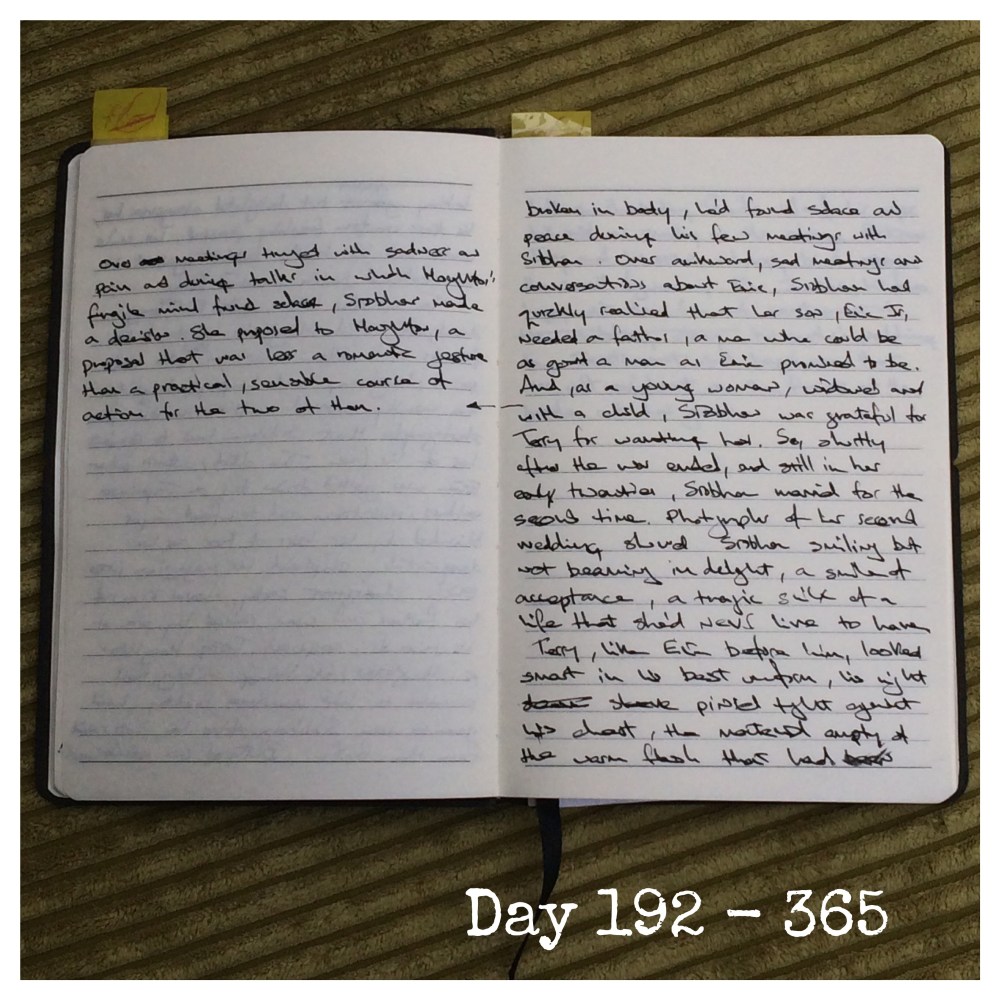 Over meetings tinged with sadness and
pain and during talks in which Haughton's
fragile mind found solace, Siobhan made
a decision. She proposed to Haughton, a
proposal that was less a romantic gesture
than a practical, sensible course of
action for the two of them.
broken in body, he'd found solace and
peace during his few meetings with
Siobhan. Over awkward, sad meetings and
conversations about Eric, Siobhan had
quickly realised that her son, Eric Jr,
needed a father, a man who could be
as good a man as Eric promised to be.
And, as a young woman, widowed and
with a child, Siobhan was grateful for
Terry for wanting her. So, shortly
after the war ended, and still in her
early twenties, Siobhan married for the
second time. Photographs of her second
wedding showed Siobhan smiling but
not beaming in delight, a smile of
acceptance, a tragic smile of a
life that she'd never live to have.
Terry, like Eric before him, looked
smart in his best uniform, his right
sleeve pinned tight against
his chest, the material empty of
the warm flesh that had
Day 192 - 365